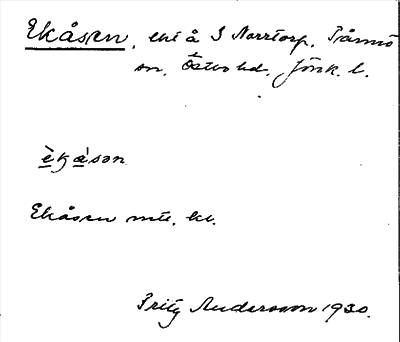 Ekåsen, ent å S Norrtorp, Trånnö
sn. Östbo hd. Jönk. l.
èkåsen
Ekåsen mtl. kt.
Fritz Andersson 1930.